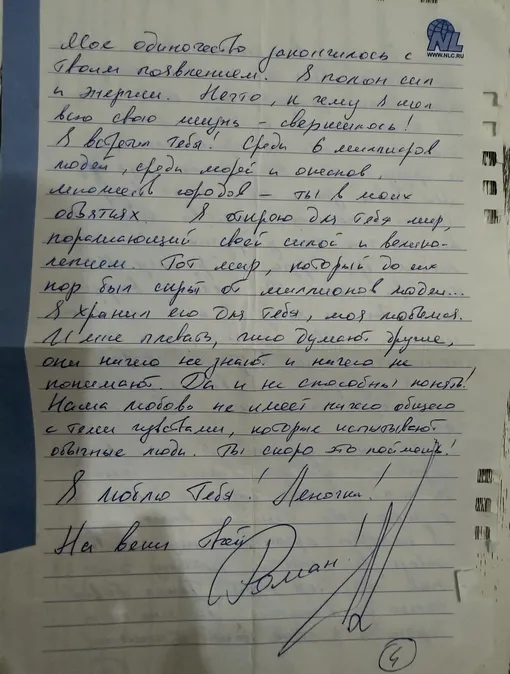 NL
WWW.NLC.RU
Мое одиночество закончилось с
твоим появлением. Я полон сил
и энергии. Нечто, к чему я шел
всю свою жизнь - свершилось!
Я встретил тебя! Среди 6 миллиардов
людей, среди морей и океанов,
множеств городов - ты в моих
объятиях. Я открою для тебя мир,
поражающий своей силой и велико-
лепием. Тот мир, который до сих
пор был скрыт от миллионов людей...
Я хранил его для тебя, моя любимая.
И мне плевать, что думают другие,
они ничего не знают и ничего не
понимают. Да и не способны понять!
Наша любовь не имеет ничего общего
с теми чувствами, которые испытывают
обычные люди. Ты скоро это поймешь!
Я люблю Тебя! Леночка!
На веки твой
Роман!
4